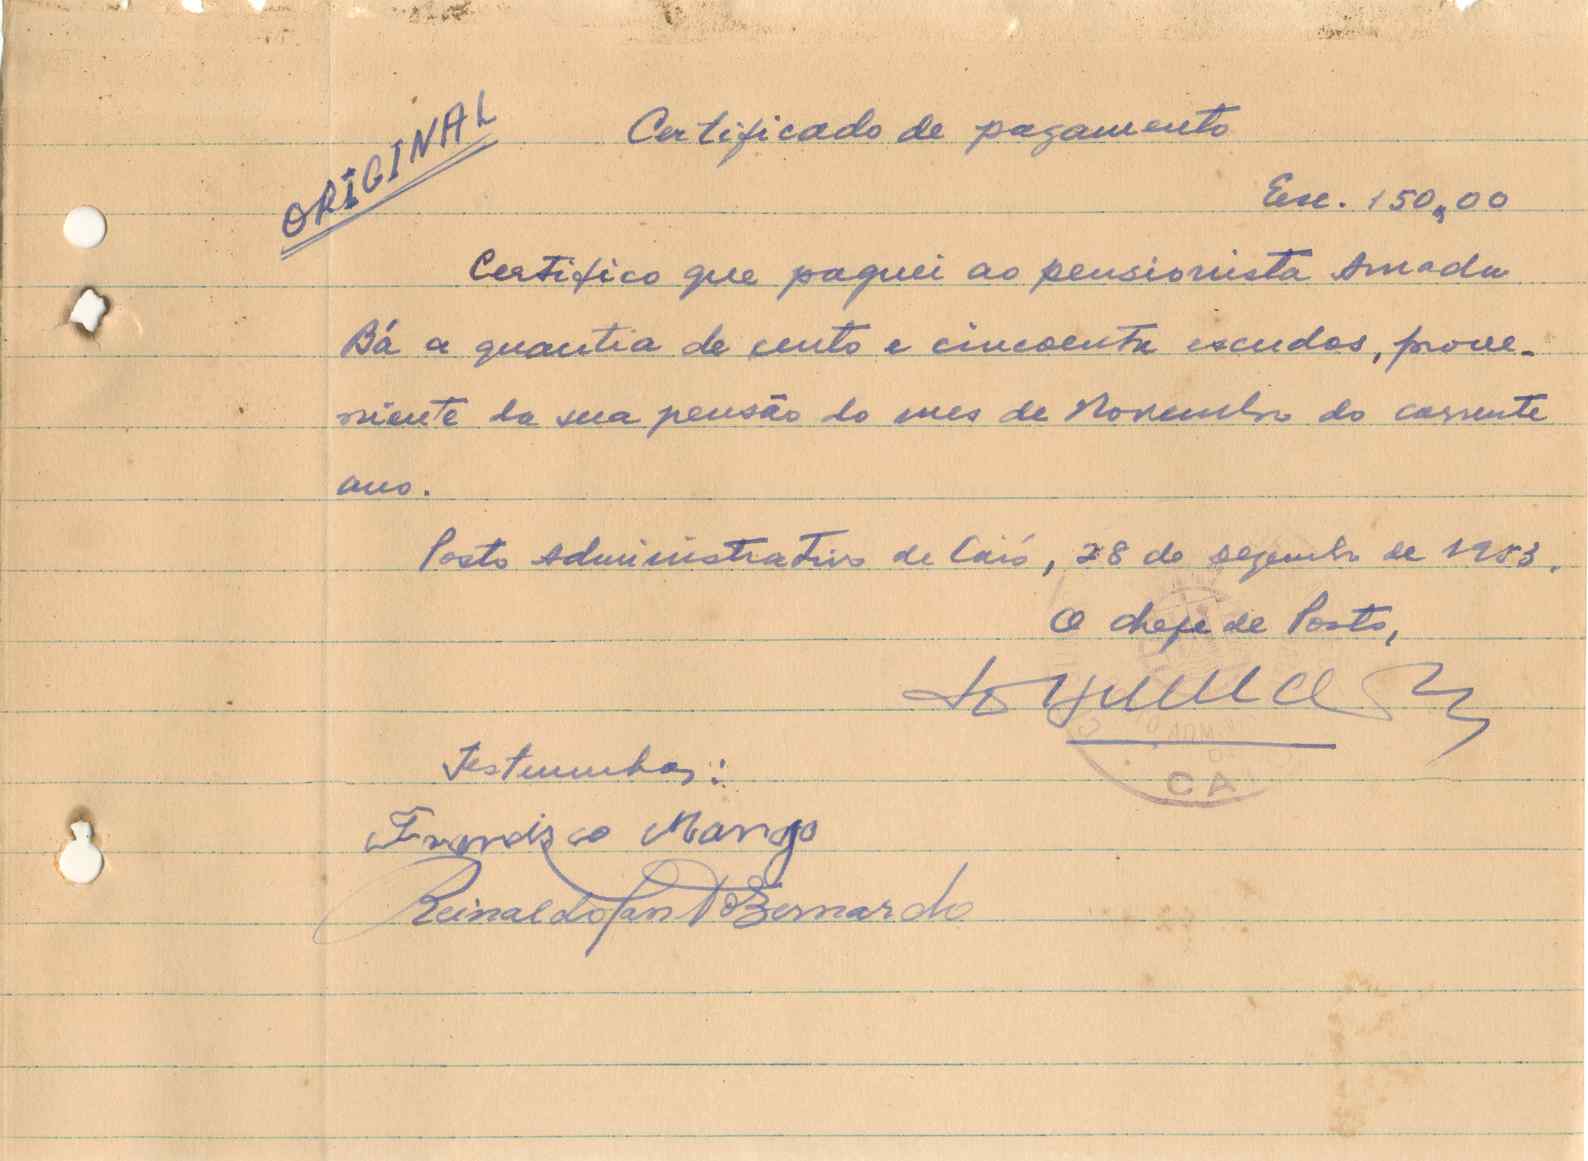 ORIGINAL
Certificado de pagamento
Esc. 150,00
Certifico que paguei ao pensionista Amadu
Bá a quantia de cento e cincoenta escudos, prove-
niente da sua pensão do mes de Novembro do corrente
ano.
Posto Administrativo de Caió, 28 de dezembro de 1953.
O chefe de Posto,
ADM
CA
Testemunhas:
Francisco Mango
Reinaldo Bernardo